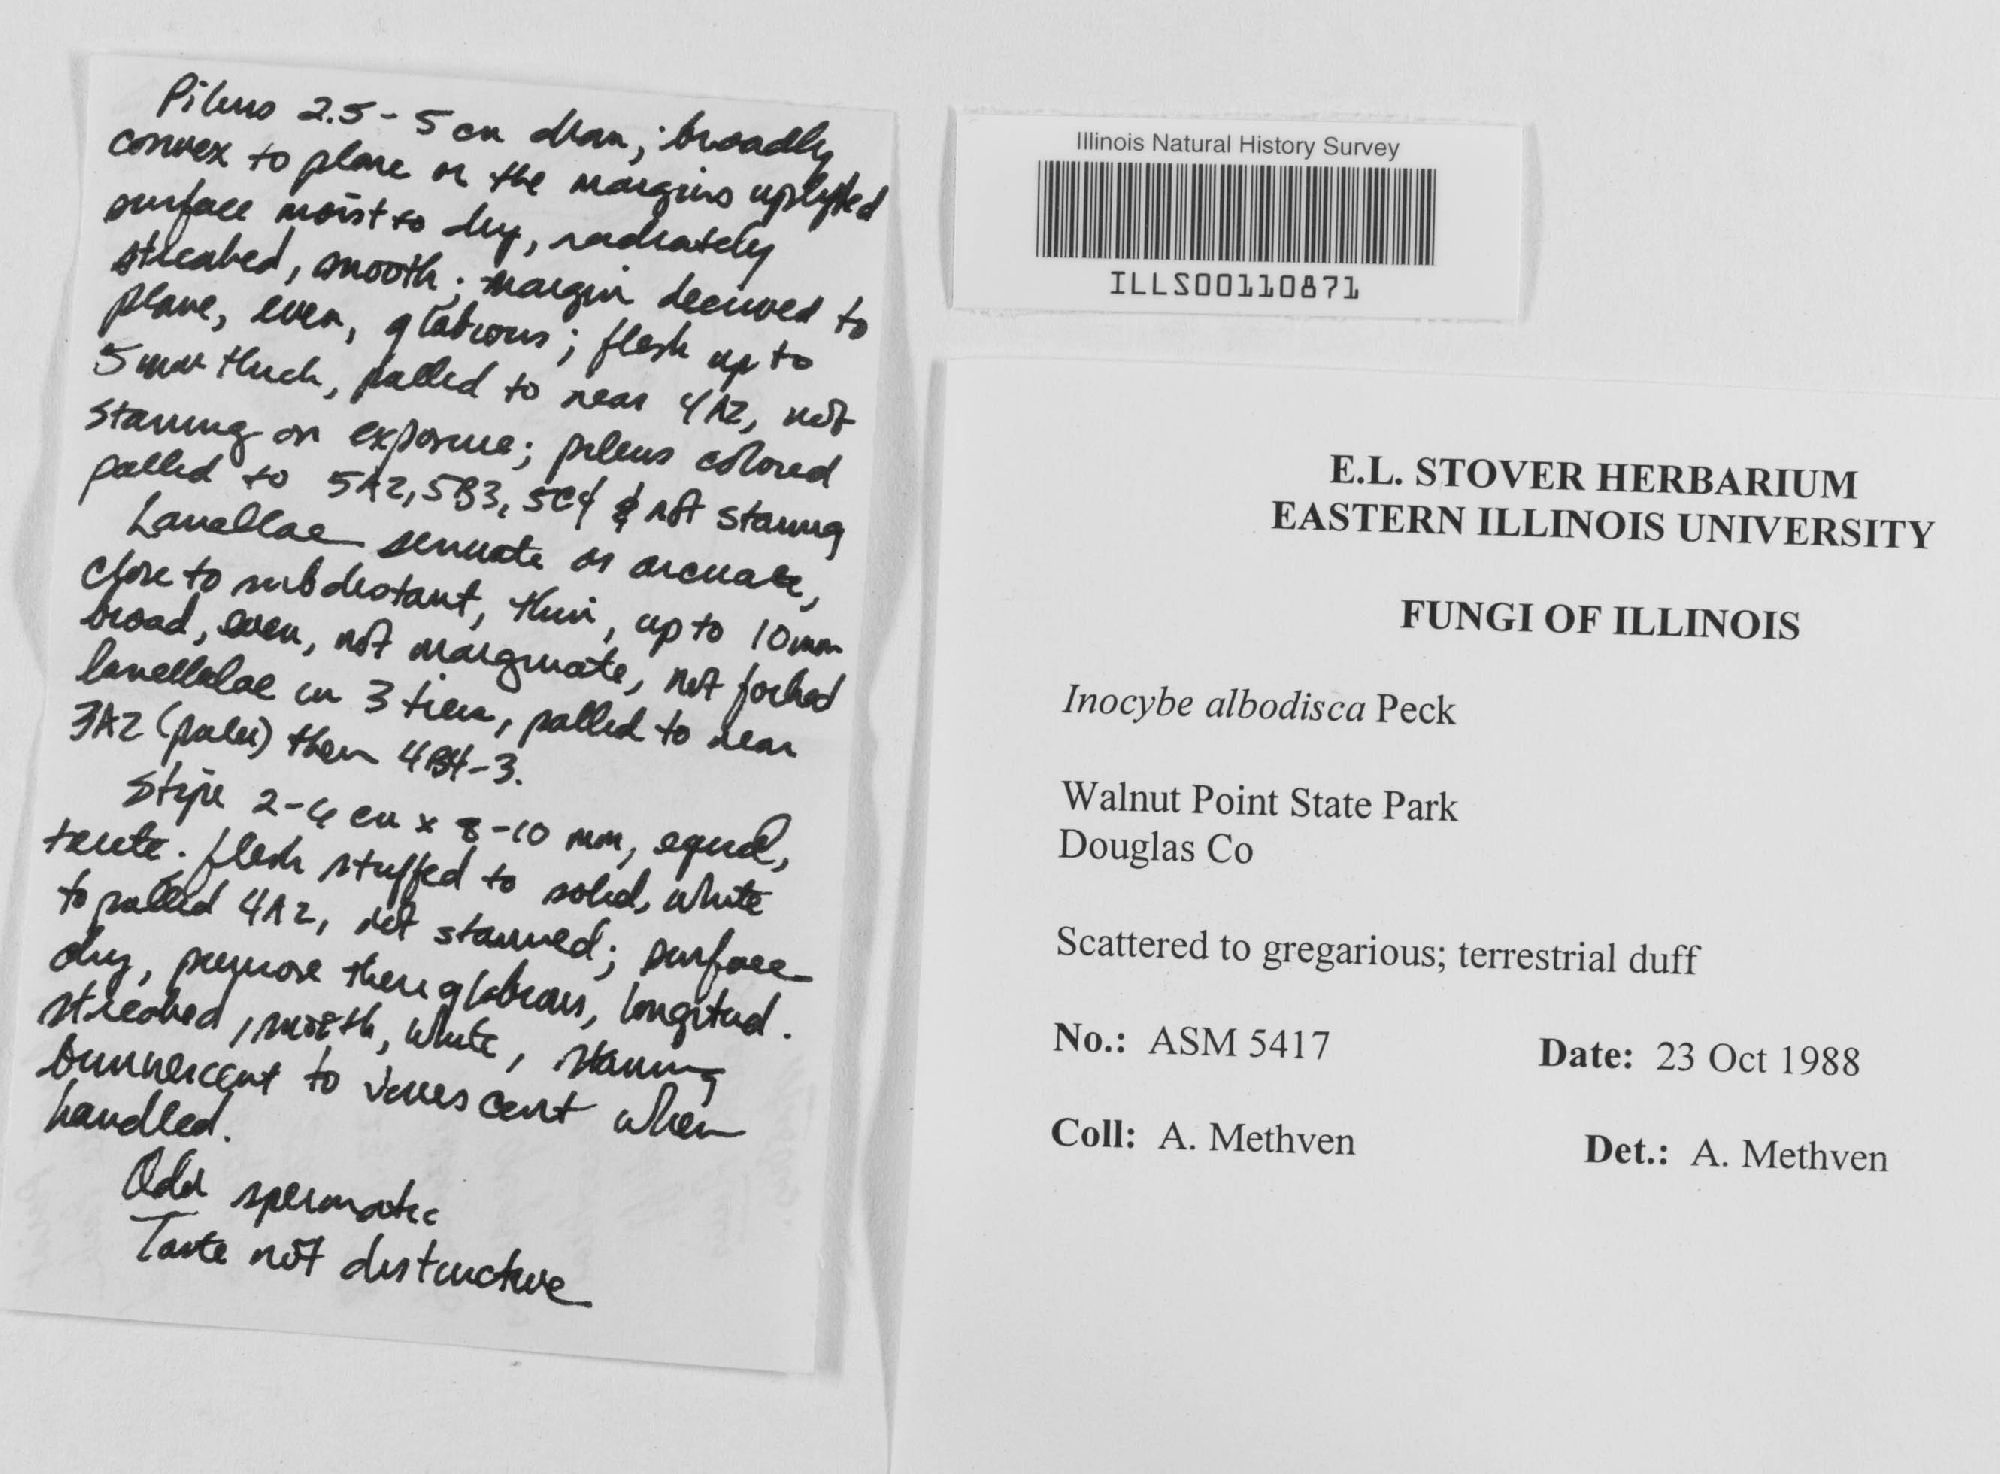 Pileus 2.5-5 cm diam; broadly
convex to plane or the margins uplifted
surface moist to dry, radiately
streaked, smooth; margin decurved to
plane, even, glabrous; flesh up to
5 mm thick, pallid to near 4A2, not
staining on exposure; pileus colored
pallid to 5A2, 5B3, 5C4 & not staining
Lamellae sinuate or arcuate,
close to subdistant, thin, up to 10 mm
broad, even, not marginate, not forked
lamellulae in 3 tiers, pallid to near
3A2 (paler) then 4B4-3.
Stipe 2-4 cm x 8-10 mm, equal,
terete. flesh stuffed to solid, white
to pallid 4A2, not stained; surface
dry, pruinose then glabrous, longitud.
streaked, smooth, white, staining
brunnescent to when
handled.
Odor spermatic
Taste not distinctive
Illinois Natural History Survey
ILLS00110871
E.L. STOVER HERBARIUM
EASTERN ILLINOIS UNIVERSITY
FUNGI OF ILLINOIS
Inocybe albodisca Peck
Walnut Point State Park
Douglas Co
Scattered to gregarious; terrestrial duff
No.: ASM 5417 Date: 23 Oct 1988
Coll: A. Methven Det.: A. Methven